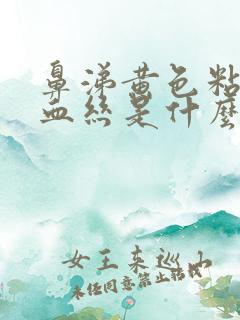 鼻涕黄色粘
血丝是什么
女王来巡山
未经同意禁止搭我